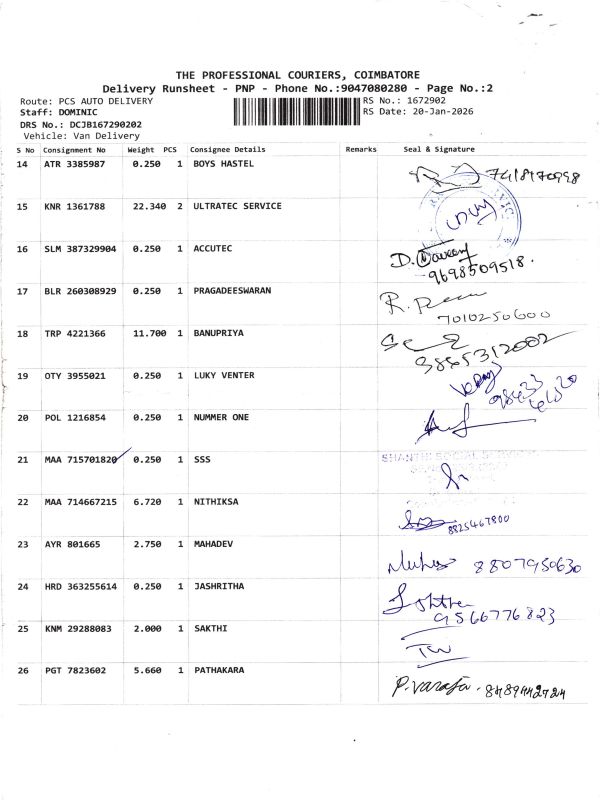 THE PROFESSIONAL COURIERS, COIMBATORE
Delivery Runsheet - PNP - Phone No.:9047080280 - Page No.:2
Route: PCS AUTO DELIVERY
RS No.: 1672902
Staff: DOMINIC
RS Date: 20-Jan-2026
DRS No.: DCJB167290202
Vehicle: Van Delivery
S No Consignment No Weight PCS Consignee Details Remarks Seal & Signature
14 ATR 3385987 0.250 1 BOYS HASTEL
15 KNR 1361788 22.340 2 ULTRATEC SERVICE
16 SLM 387329904 0.250 1 ACCUTEC D. Naveen
9698509518.
17 BLR 260308929 0.250 1 PRAGADEESWARAN R.
7010250600
18 TRP 4221366 11.700 1 BANUPRIYA
9865312002
19 OTY 3955021 0.250 1 LUKY VENTER
20 POL 1216854 0.250 1 NUMMER ONE
21 MAA 715701820 0.250 1 SSS SHANTHI SOCIAL SERVICES
22 MAA 714667215 6.720 1 NITHIKSA
8825467800
23 AYR 801665 2.750 1 MAHADEV 8807950630
24 HRD 363255614 0.250 1 JASHRITHA
9566776823
25 KNM 29288083 2.000 1 SAKTHI
26 PGT 7823602 5.660 1 PATHAKARA P. Varafa. 8489442724